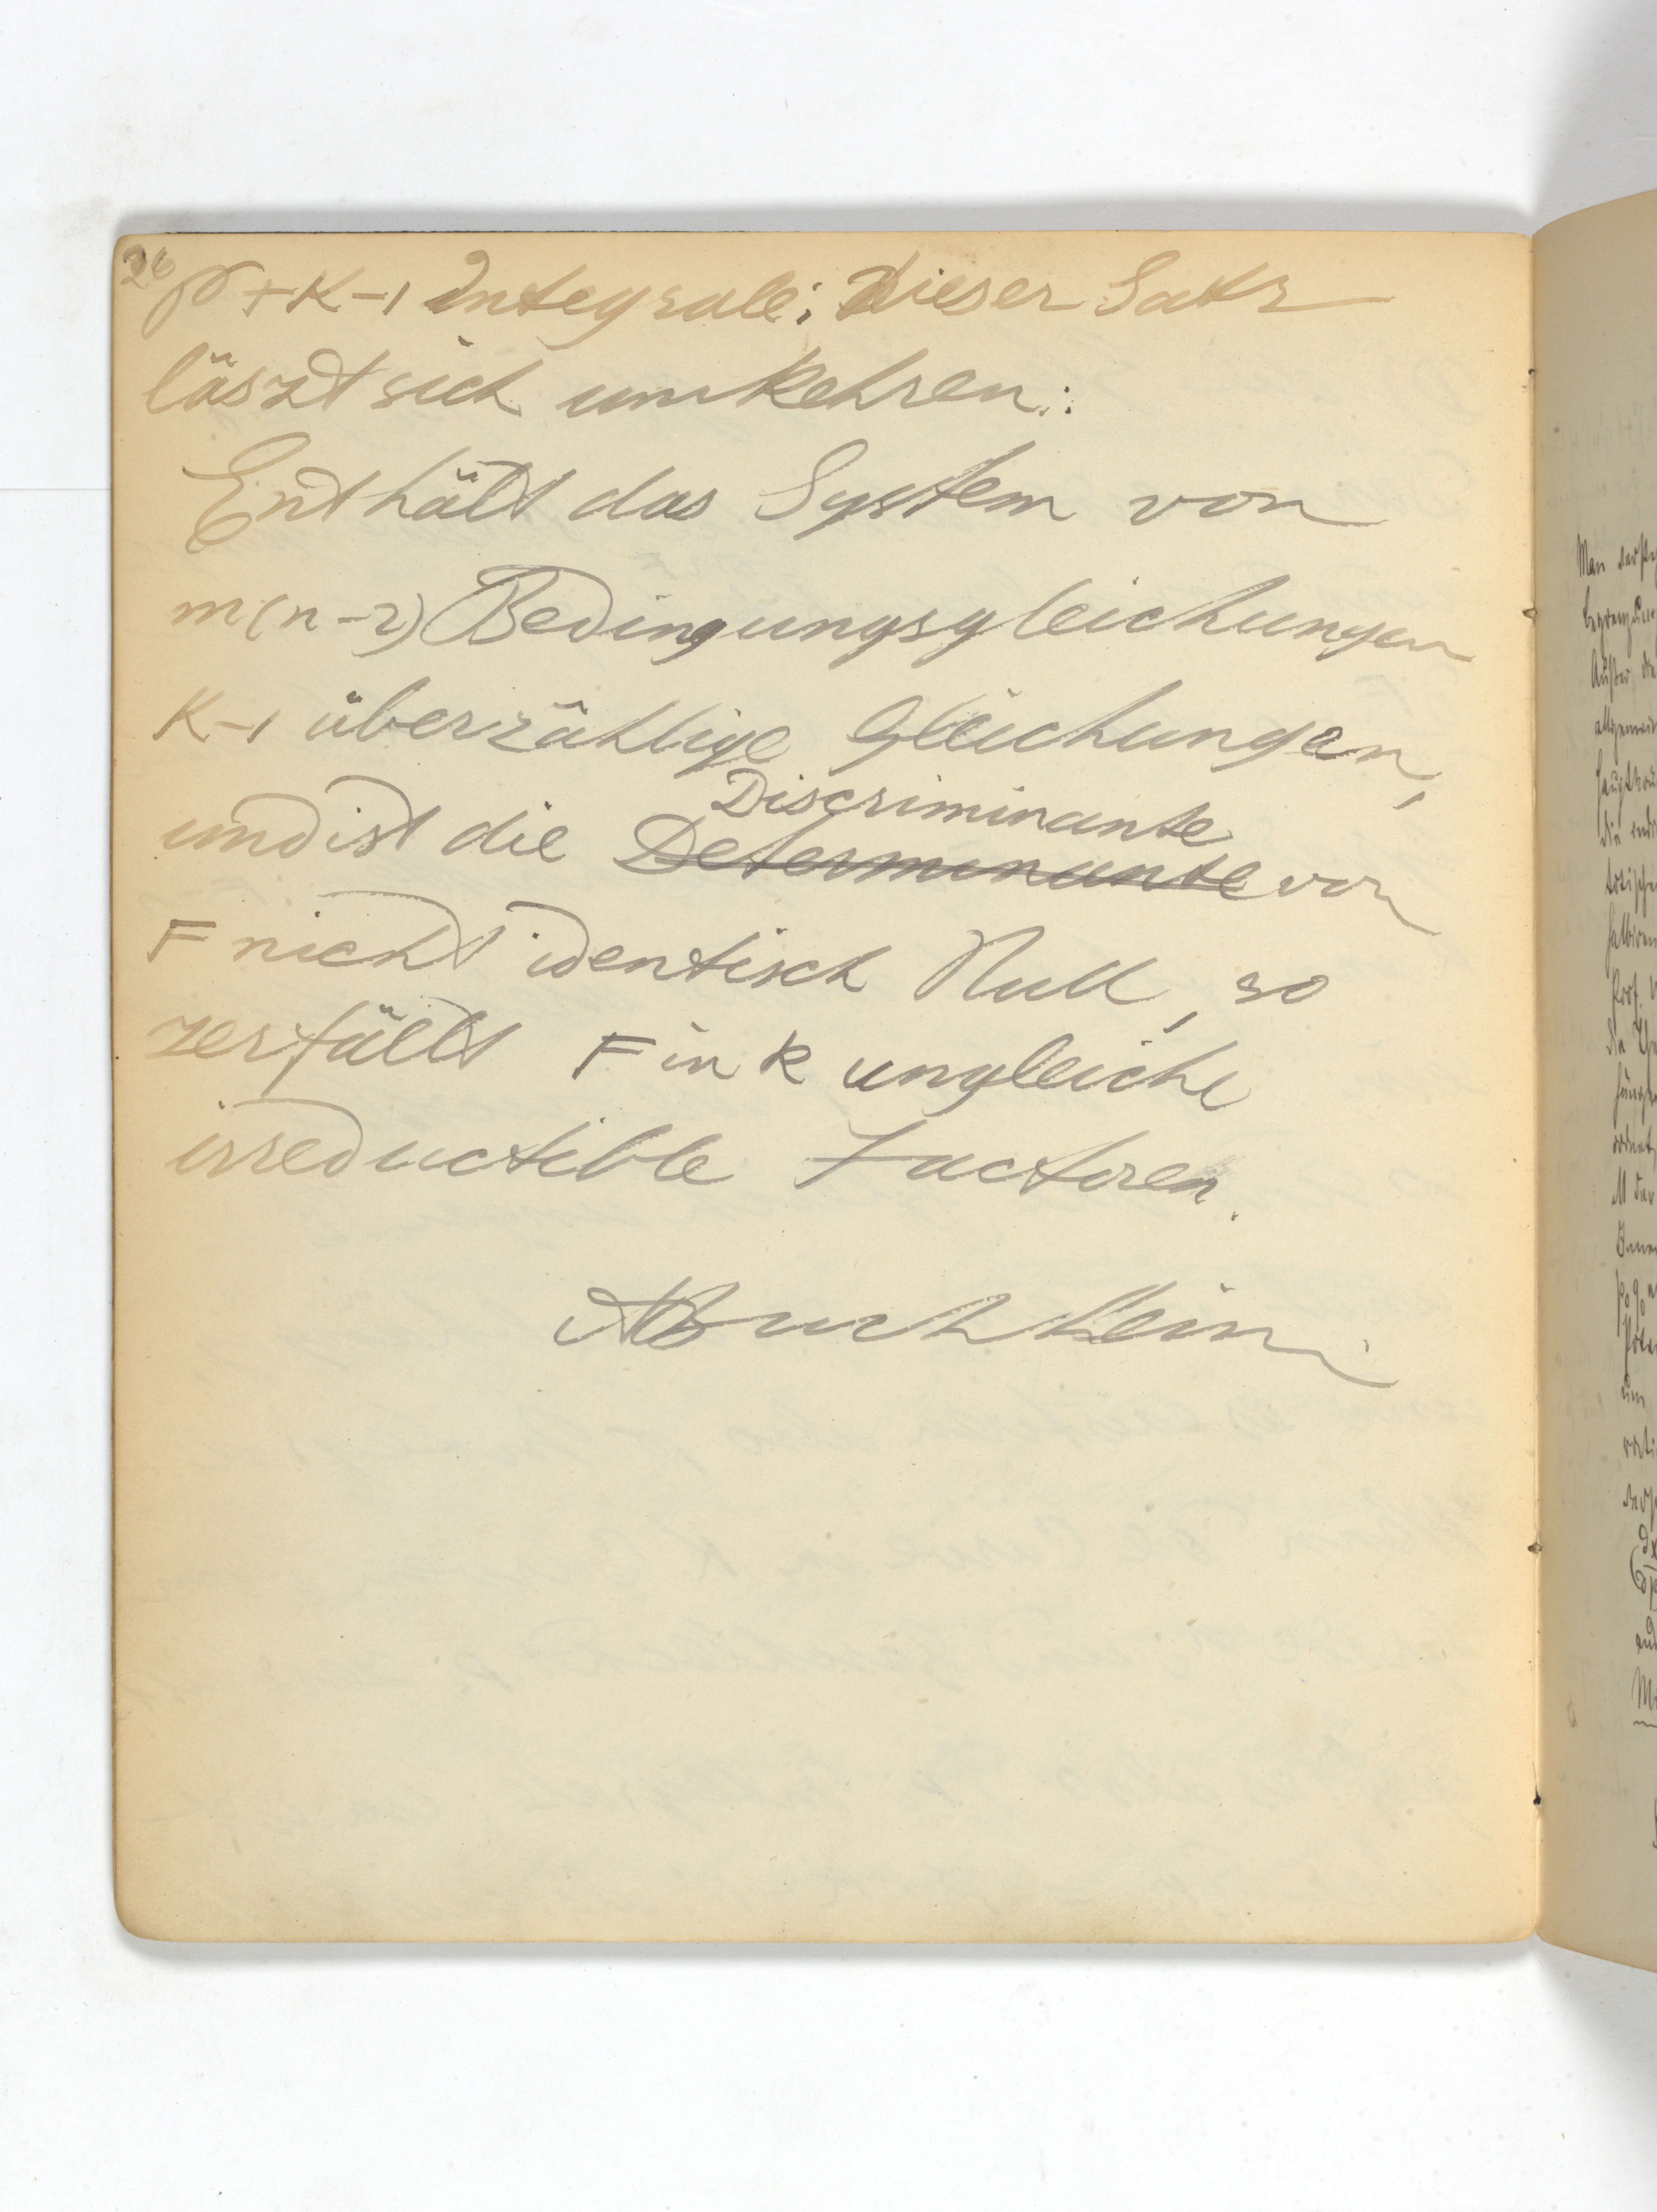 26
p + K-1 Integrale; Dieser Satz
läszt sich umkehren:
Enthält das System von
m(n-2) Bedingungsgleichungen
K-1 überzählige Gleichungen,
Discriminante
und ist die Determinante von
F nicht identisch Null, so
zerfällt F in k ungleiche
irreductible Factoren.
ABuchheim